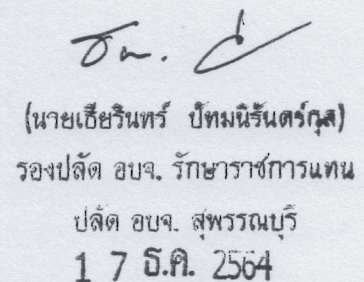 (นายเธียรินทร์ ปัทมนิรันดร์กุล)
รองปลัด อบจ. รักษาราชการแทน
ปลัด อบจ. สุพรรณบุรี
1 7 ธ.ค. 2564